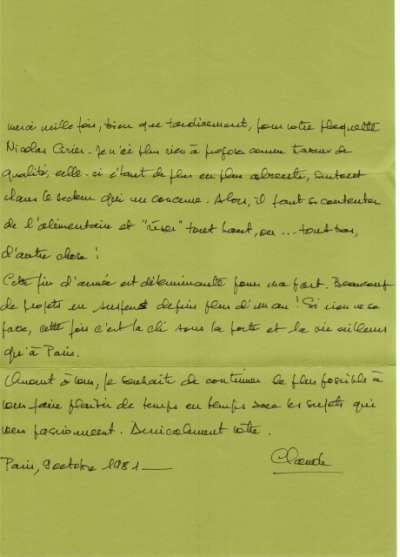 merci mille fois, bien que tardivement, pour votre plaquette
Nicolas Cirier. Je n'ai plus rien à proposer comme travaux de
qualité, celle-ci étant de plus en plus absente, surtout
dans le secteur qui me concerne. Alors, il faut se contenter
de l'alimentaire et "rêver" tout haut, ou ... tout bas,
d'autre chose !
Cette fin d'année est déterminante pour ma part. Beaucoup
de projets en suspens depuis plus d'un an ! Si rien ne se
passe, cette fois c'est la clé sous la porte et la vie ailleurs
qu'à Paris.
Quant à vous, je souhaite de continuer le plus possible à
vous faire plaisir de temps en temps avec les sujets qui
vous passionnent. Amicalement vôtre.
Paris, 9 octobre 1981
Claude